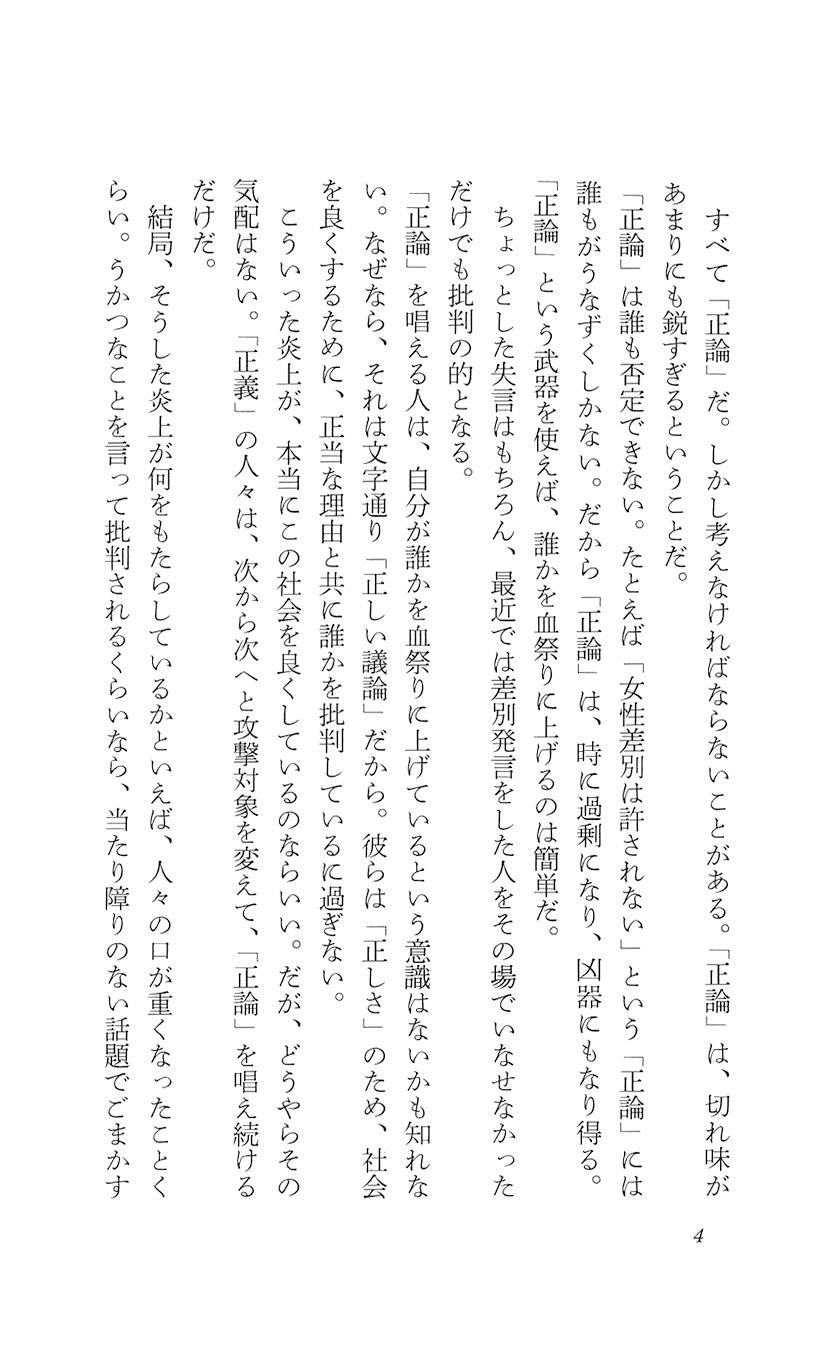 すべて「正論」だ。しかし考えなければならないことがある。「正論」は、切れ味が
あまりにも鋭すぎるということだ。
「正論」は誰も否定できない。たとえば「女性差別は許されない」という「正論」には
誰もがうなずくしかない。だから「正論」は、時に過剰になり、凶器にもなり得る。
「正論」という武器を使えば、誰かを血祭りに上げるのは簡単だ。
ちょっとした失言はもちろん、最近では差別発言をした人をその場でいなせなかった
だけでも批判の的となる。
「正論」を唱える人は、自分が誰かを血祭りに上げているという意識はないかも知れな
い。なぜなら、それは文字通り「正しい議論」だから。彼らは「正しさ」のため、社会
を良くするために、正当な理由と共に誰かを批判しているに過ぎない。
こういった炎上が、本当にこの社会を良くしているのならいい。だが、どうやらその
気配はない。「正義」の人々は、次から次へと攻撃対象を変えて、「正論」を唱え続ける
だけだ。
結局、そうした炎上が何をもたらしているかといえば、人々の口が重くなったことく
らい。うかつなことを言って批判されるくらいなら、当たり障りのない話題でごまかす
4